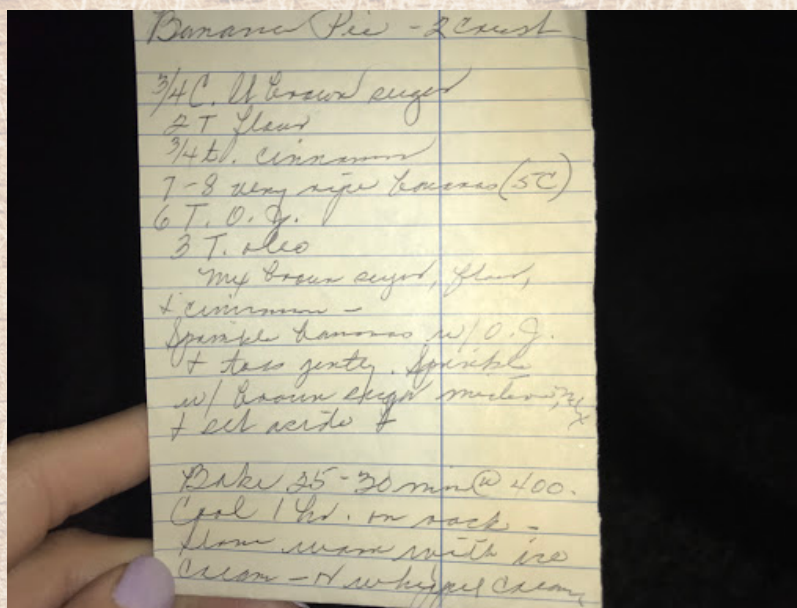 Banana Pie - 2 Crust
3/4 C. lt brown sugar
2 T flour
3/4 t. cinnamon
7-8 very ripe bananas (5C)
6 T. O.J.
3 T. oleo
Mix brown sugar, flour,
+ cinnamon -
Sprinkle bananas w/ O.J.
+ toss gently. Sprinkle
w/ brown sugar mixture, mix
+ set aside +
Bake 25-30 min @ 400.
Cool 1 hr. on rack -
warm with ice
Cream - or whipped cream